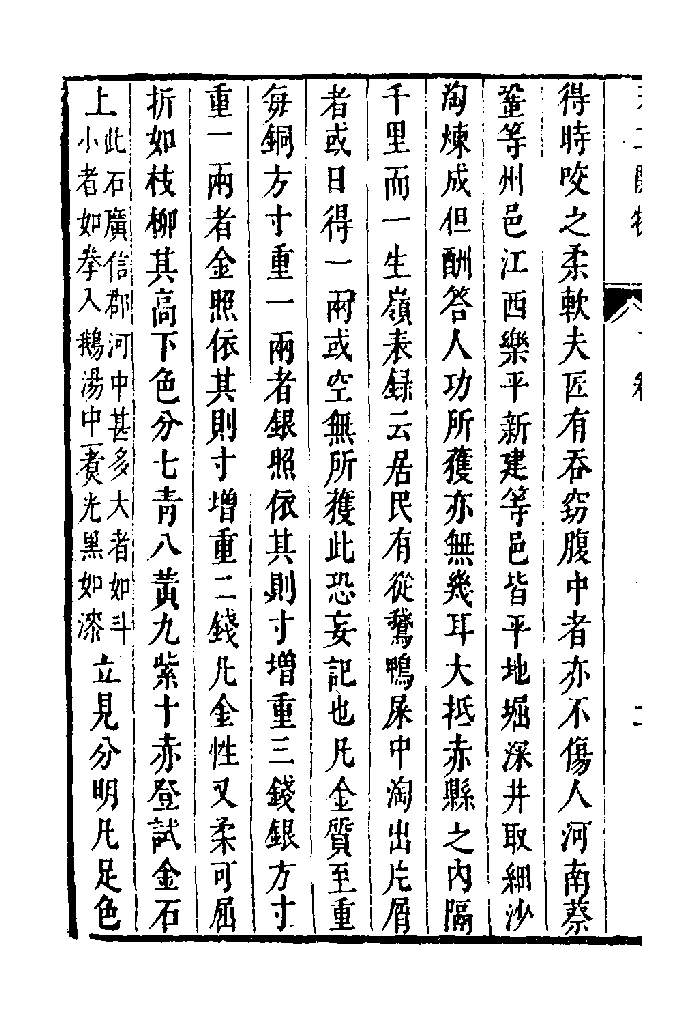 得時咬之柔軟夫匠有吞竊腹中者亦不傷人河南蔡
鞏等州邑江西樂平新建等邑皆平地堀深井取細沙
淘煉成但酬答人功所獲亦無幾耳大抵赤縣之內隔
千里而一生嶺表録云居民有從鵞鴨屎中淘出片屑
者或日得一兩或空無所獲此恐妄記也凡金質至重
每銅方寸重一兩者銀照依其則寸增重三錢銀方寸
重一兩者金照依其則寸增重二錢凡金性又柔可屈
折如枝柳其高下色分七青八黃九紫十赤登試金石
上此石廣信郡河中甚多大者如斗小者如拳入鵝湯中一煑光黑如漆立見分明凡足色